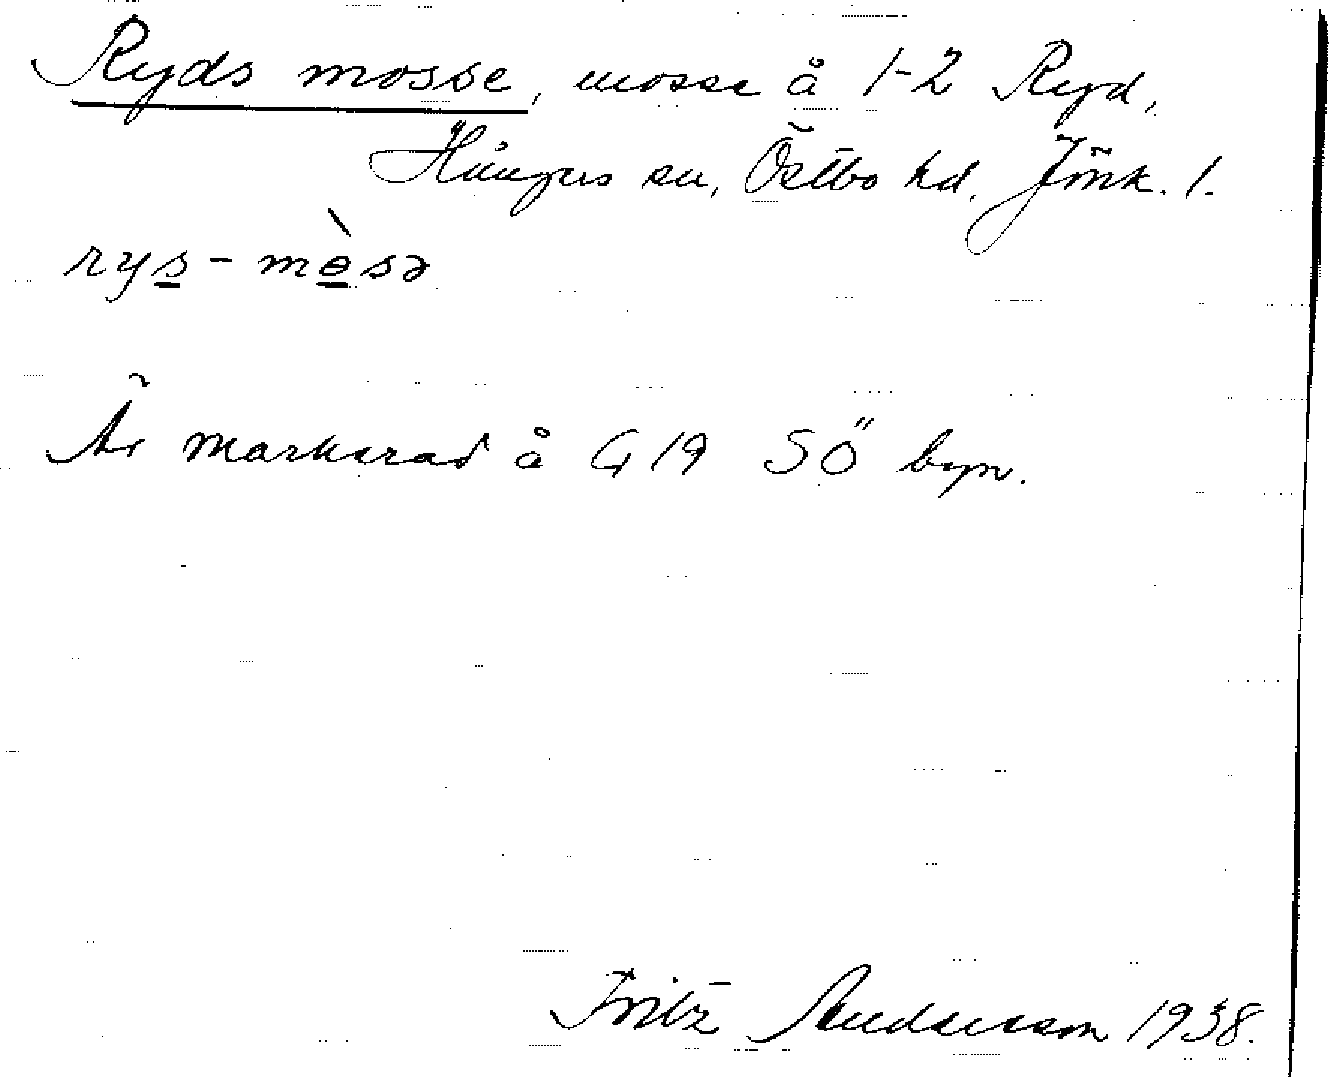 Ryds mosse, mosse å 1-2 Ryd,
Hånger sn, Östbo hd. Jönk. l.
rys - mèsə
Är markerad å G 19 SÖ byn.
Fritz Andersson 1938.